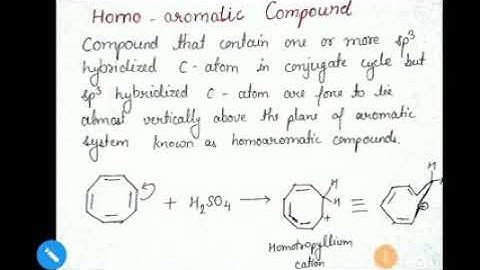 Homo-aromatic Compound
Compound that contain one or more sp³
hybridized C-atom in conjugate cycle but
sp³ hybridized C-atom are forc to lie
almost vertically above the plane of aromatic
system known as homoaromatic compounds.
+ H₂SO₄ → H H + ≡ H ⊕
Homotropyllium
cation